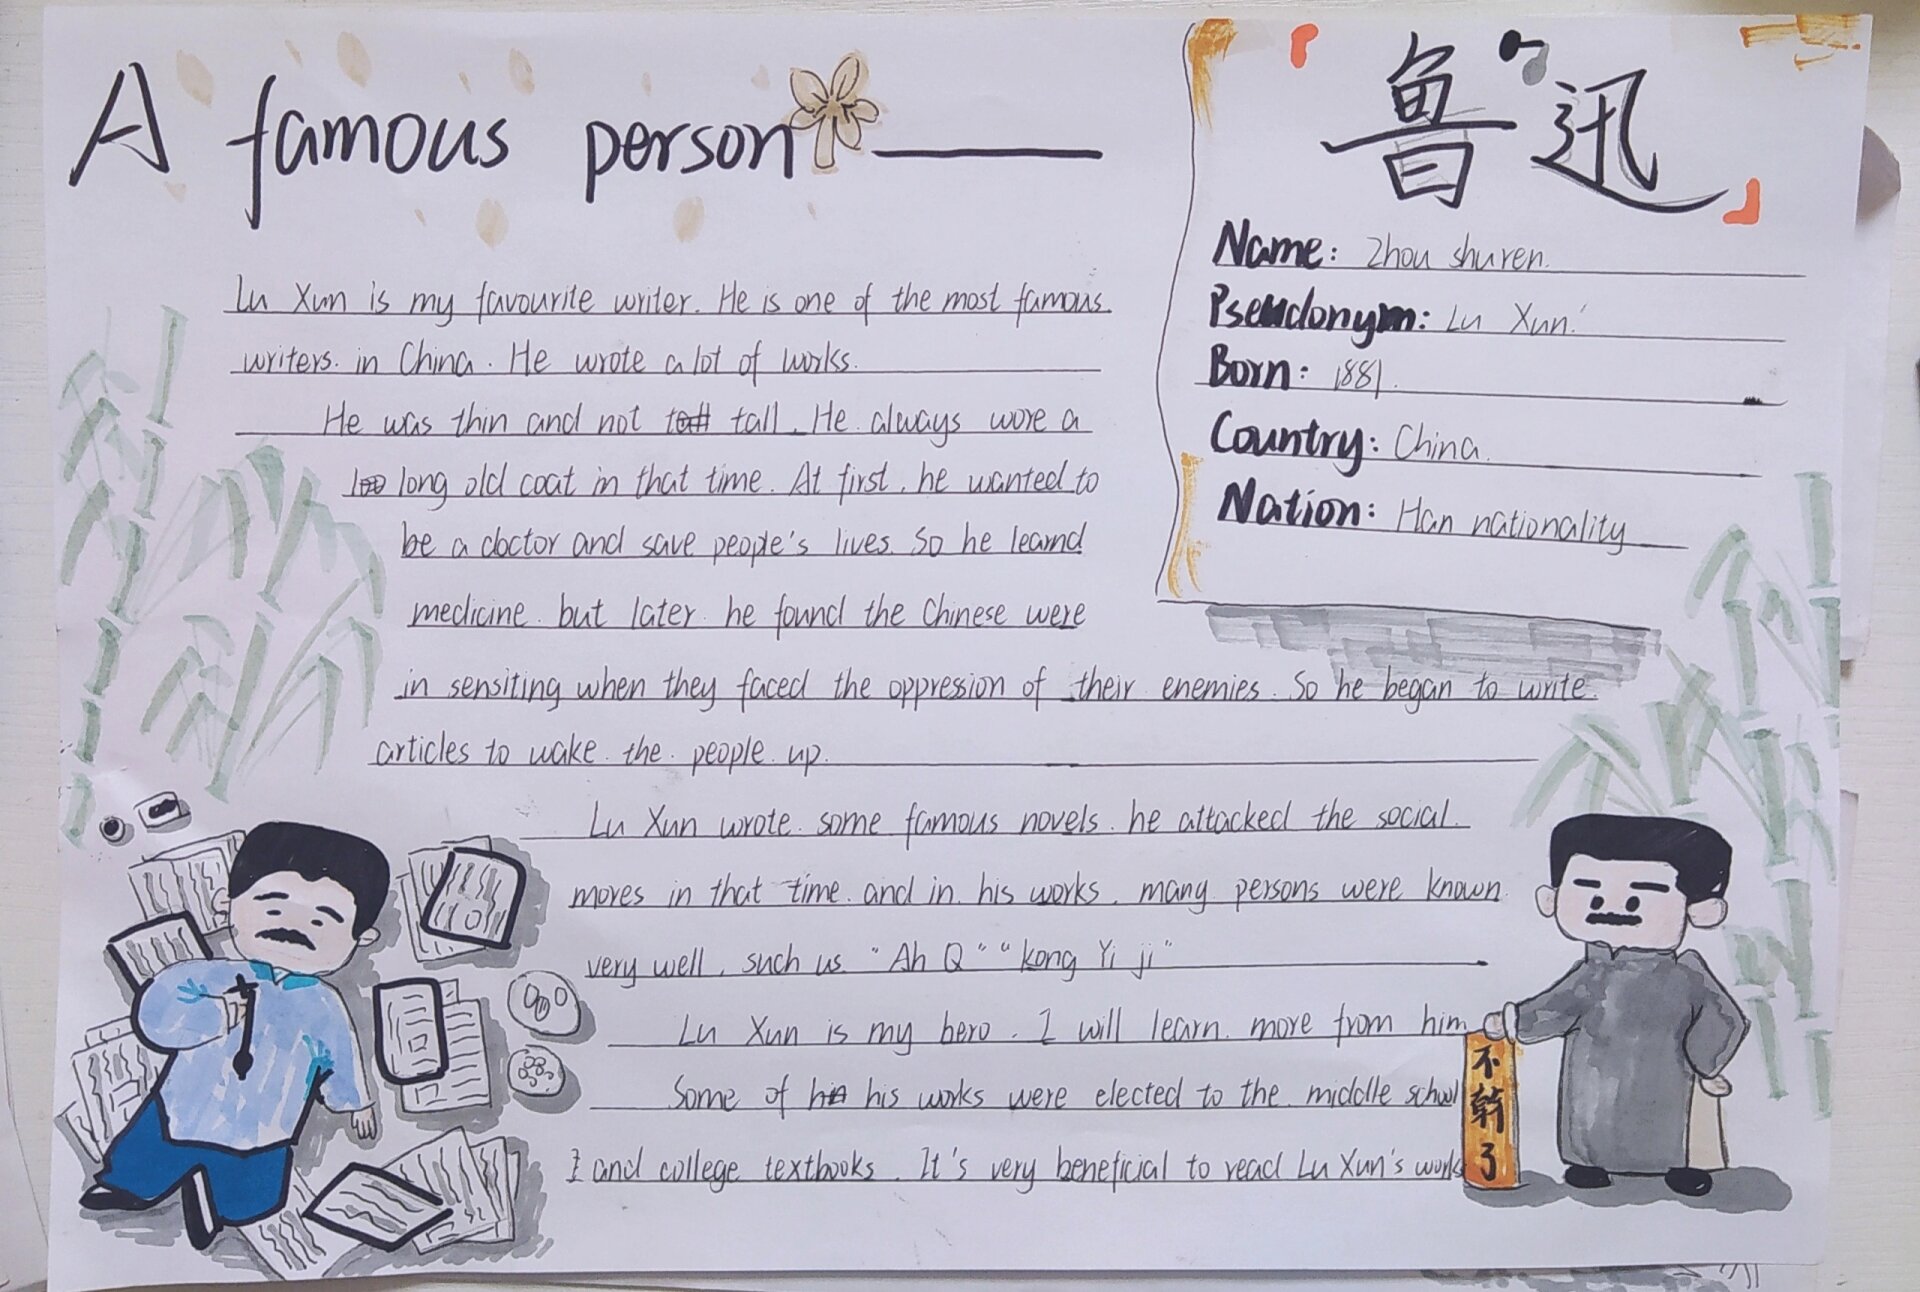 A famous person ——
Lu Xun is my favourite writer. He is one of the most famous
writers. in China. He wrote a lot of works.
He was thin and not tall. He always wore a
long old coat in that time. At first, he wanted to
be a doctor and save people's lives. So he learnd
medicine. but later. he found the Chinese were
in sensiting when they faced the oppression of their enemies. So he began to write.
articles to wake. the. people. up.
Lu Xun wrote. some famous novels. he attacked the social.
moves in that time. and in. his works. many persons were known.
very well, such us. "Ah Q" "kong Yi ji"
Lu Xun is my hero. I will learn. more from him.
Some of his works were elected to the middle school
and college textbooks. It's very beneficial to read Lu Xun's works
「鲁迅」
Name: Zhou shuren.
Pseudonym: Lu Xun.
Born: 1881.
Country: China.
Nation: Han nationality
不幹了